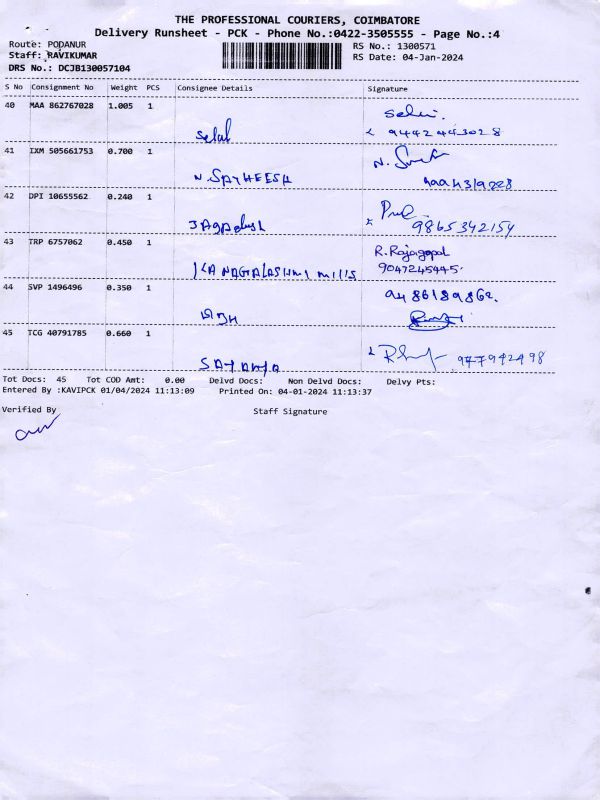 THE PROFESSIONAL COURIERS, COIMBATORE
Delivery Runsheet - PCK - Phone No.:0422-3505555 - Page No.:4
Route: PODANUR
RS No.: 1300571
Staff: RAVIKUMAR
RS Date: 04-Jan-2024
DRS No.: DCJB130057104
S No Consignment No Weight PCS Consignee Details Signature
40 MAA 862767028 1.005 1
9442443028
41 IXM 505661753 0.700 1
N. SATHEESH
42 DPI 10655562 0.240 1
9865342154
43 TRP 6757062 0.450 1
R. Rajagopal
9047245445
44 SVP 1496496 0.350 1
9486189862.
45 TCG 40791785 0.660 1
Tot Docs: 45 Tot COD Amt: 0.00 Delvd Docs: Non Delvd Docs: Delvy Pts:
Entered By :KAVIPCK 01/04/2024 11:13:09 Printed On: 04-01-2024 11:13:37
Verified By Staff Signature